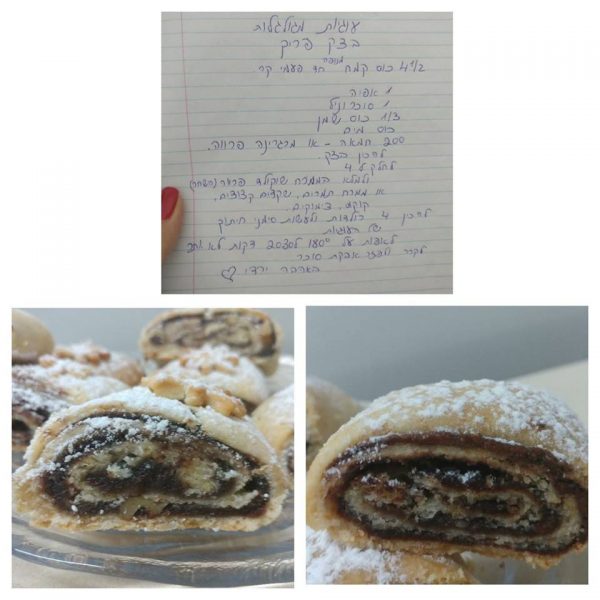 עוגיות מגולגלות
בצק פריך
4 1/2 כוס קמח מנופה חד פעמי קר.
1 אפיה
1 סוכר וניל
1/3 כוס שמן
כוס מים
200 חמאה - או מרגרינה פרווה.
להכין בצק.
לחלק ל 4
ולמלא הממרח שוקולד פרווה (השחר)
או ממרח תמרים, שקדים קצוצים,
קוקוס, צימוקים.
להכין 4 רולדות ולעשות סימני חיתוך
של העוגיות
לאפות על 180° ל 2030 דקות לא יותר
לקרר ולפזר אבקת סוכר
באהבה ירדי ♡